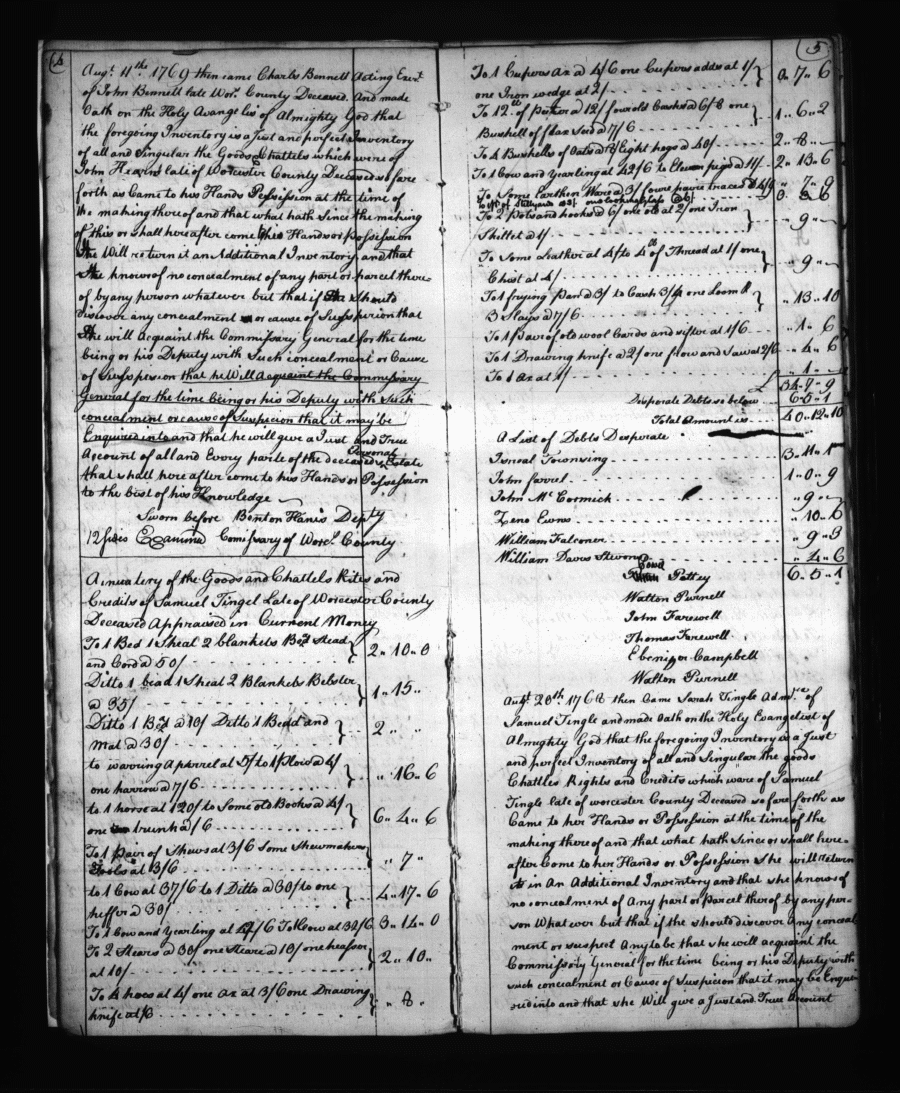 4
Augt. 11th. 1769 then came Charles Bennett Acting Exert
of John Bennett late Worr. County Deceased. And made
Oath on the Holy Avangelies of Almighty God that
the foregoing Inventory is a Just and perfect Inventory
of all and Singular the Goods Chattels which were of
John Hearns late of Worcester County Deceased so fare
forth as Came to his Hands Possession at the time of
the making there of and that what hath Since the making
of this or shall hereafter come his Hands or possession
He Will return it an Additional Inventory, and that
He knows of no concealment of any part or parcel there
of by any person whatever but that if He Should
discover any concealment or cause of Suspicion that
He will acquaint the Commissary General for the time
being or his Deputy with Such concealment or Cause
of Suspicion that he Will Acquaint the Commissary
General for the time being or his Deputy with Such
concealment or cause of Suspecion that it may be
Enquired into and that he will give a Just and True
Account of all and Every parte of the deceaseds Personal Estate
that shall here after come to his Hands or Possession
to the best of his Knowledge
Sworn before Benton Harris Depty
12 sides Examind Comissary of Worcr. County
A inuatery of the Goods and Chattels Rites and
Credits of Samuel Tingel Late of Worcester County
Deceased Appraised in Current Money
To 1 Bed 1 Sheat 2 blankets Bed Stead
and Cord a 50/ 2 " 10 " 0
Ditto 1 bead 1 Sheat 2 Blankets Bebster
a 35/ 1 " 15 "
Ditto 1 Bed a 10/ Ditto 1 Bead and
Mat a 30/ 2 " "
to warring Aparrel at 5/ to 1 Ploid a 4/
one harrow a 7/6 " 16 " 6
to 1 horse at 120/ to Some old Books a 4/
one trunk a /6 6 " 4 " 6
To 1 Pair of Shews at 3/6 Some Shewmakers
Tools at 3/6 " 7 "
to 1 Cow at 37/6 to 1 Ditto a 30/ to one
heffor a 30/ 4 " 17 " 6
To 1 Cow and Yearling at 42/6 To 1 Cow at 32/6 3 " 14 " 0
To 2 Stears a 30/ one Steare a 10/ one heafsor
at 10/ 2 " 10 "
To 4 hoes at 4/ one ax at 3/6 one Drawing
knife at /6 " 8 "
5
To 1 Cupers Ax a 4/6 one Cupers addes at 1/
one Iron wedge at 2/ 0 " 7 " 6
To 12lb of Peuter a 12/ four old Casks a 6/8 one
Bushell of flax Seed a 7/6 1 " 6 " 2
To 4 Bushells of Oats a 8/ Eight hogs a 40/ 2 " 8 "
To 1 Cow and Yearling at 42/6 to Eleven pigs a 11/ 2 " 13 " 6
To Some Earthen Ware a 3/ foure paire traces a 4/9 " 7 " 9
To 2 Pots and hooks a 6/ one old at 2/ one Iron
Skillet a 1/ " 9 "
To Some Leather at 4/ to 4lb of Thread at 1/ one
Chest at 4/ " 9 "
To 1 frying Pan a 3/ to Cash 3/4 one Loom &
3 Slays a 7/6 " 13 " 10
To 1 Pair of old wool Cards and sifter at 1/6 " 1 " 6
To 1 Drawing knife a 2/ one frow and Saw a 2/6 " 4 " 6
To 1 Ax at 1/ " 1 "
£ 34 " 7 " 9
Desporate Debts as below 6 " 5 " 1
Total Amount is 40 " 12 " 10
A List of Debts Desporate
Isreal Townsing 3 " 11 " 1
John farrel 1 " 0 " 9
John McCormick " 9 "
Zeno Evens " 10 " 6
William Falconer " 9 " 3
William Daves Stevens " 4 " 6
6 " 5 " 1
Pottey
Watton Purnell
John Farewell
Thomas Farewell
Ebenizor Campbell
Watton Purnell
Augt. 20th. 1768 then Came Sarah Tingle Admrx of
Samuel Tingle and made Oath on the Holy Evangelist of
Almighty God that the foregoing Inventory is a Just
and perfect Inventory of all and Singular the goods
Chattles Rights and Credits which ware of Samuel
Tingle late of worcester County Deceased so fare forth as
Came to her Hands or Possession at the time of the
making there of and that what hath Since or shall here-
after Come to her Hands or Possession She will return
it in An Additional Inventory and that she knows of
no concealment of Any part or Parcel there of by any per-
son What ever but that if she should discover Any conceal
ment or suspect Any to be that she will acquaint the
Commissory General for the time being or his Deputy with
such concealment or Cause of Suspicion that it may be Enqui-
red into and that she Will give a Just and True Account